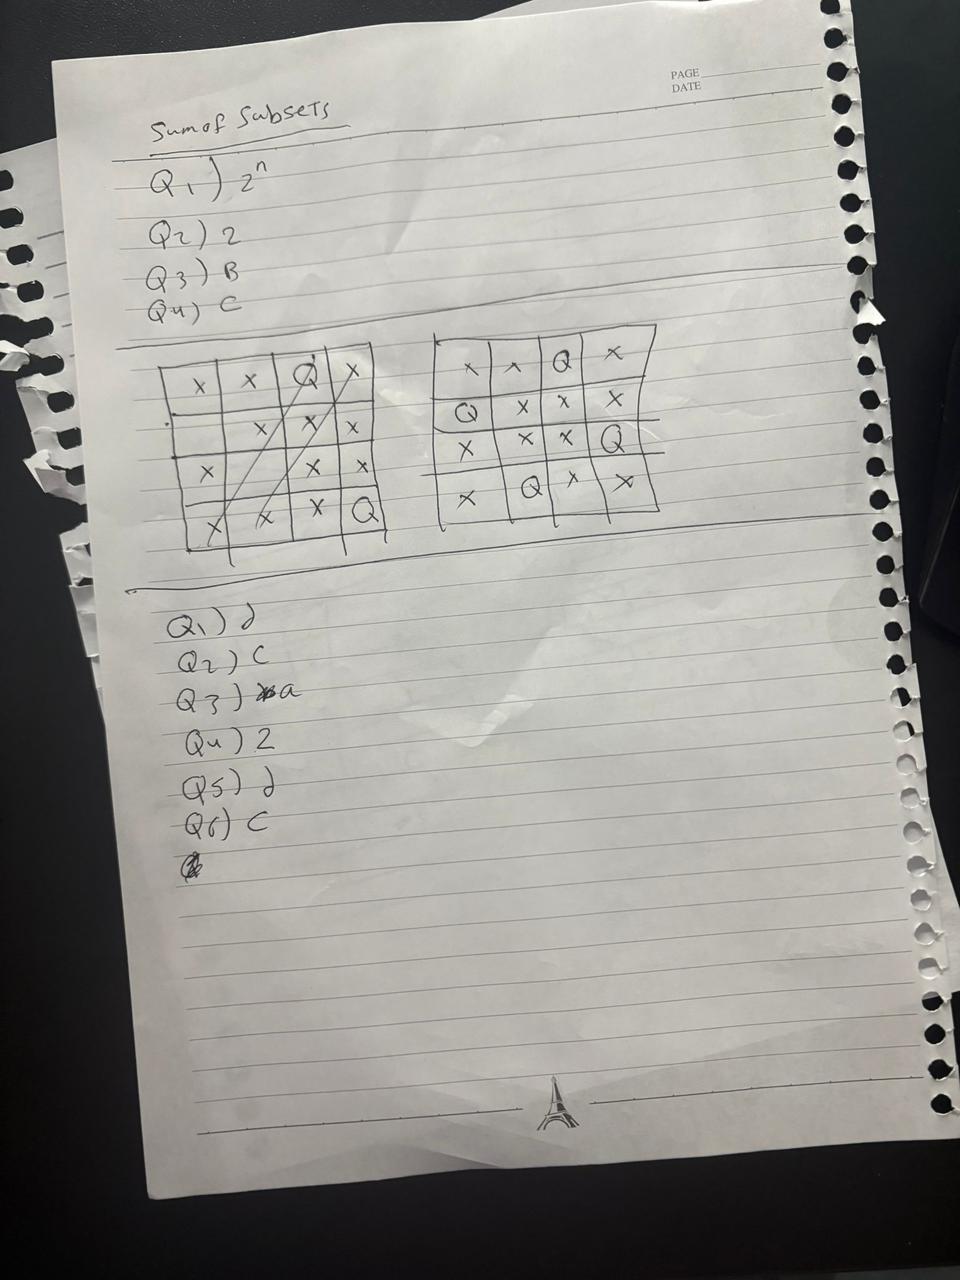 PAGE
DATE
Sum of Subsets
Q1) 2ⁿ
Q2) 2
Q3) B
Q4) C
x x Q x
x x x
x x x
x x x Q
x x Q x
Q x x x
x x x Q
x Q x x
Q1) d
Q2) C
Q3) a
Q4) 2
Q5) d
Q6) C